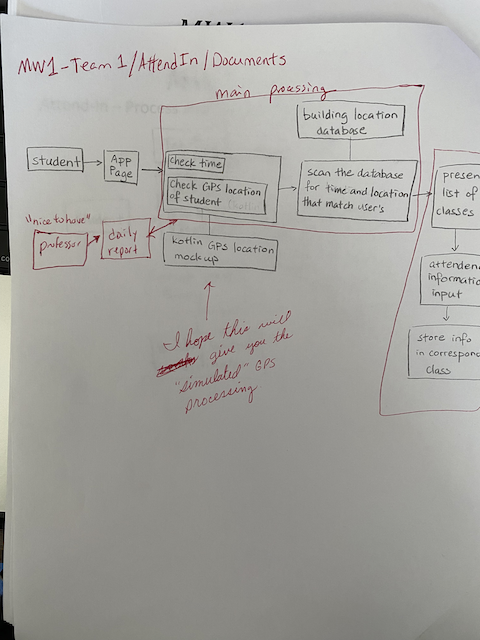 MW1-Team 1/AttendIn/Documents
main processing
building location
database
student
App
Page
check time
Check GPS location
of student
scan the database
for time and location
that match user's
presen
list of
classes
"nice to have"
professor
daily
report
kotlin GPS location
mockup
attenden
informatio
input
store info
in correspon
class
I hope this will
give you the
"simulated" GPS
processing